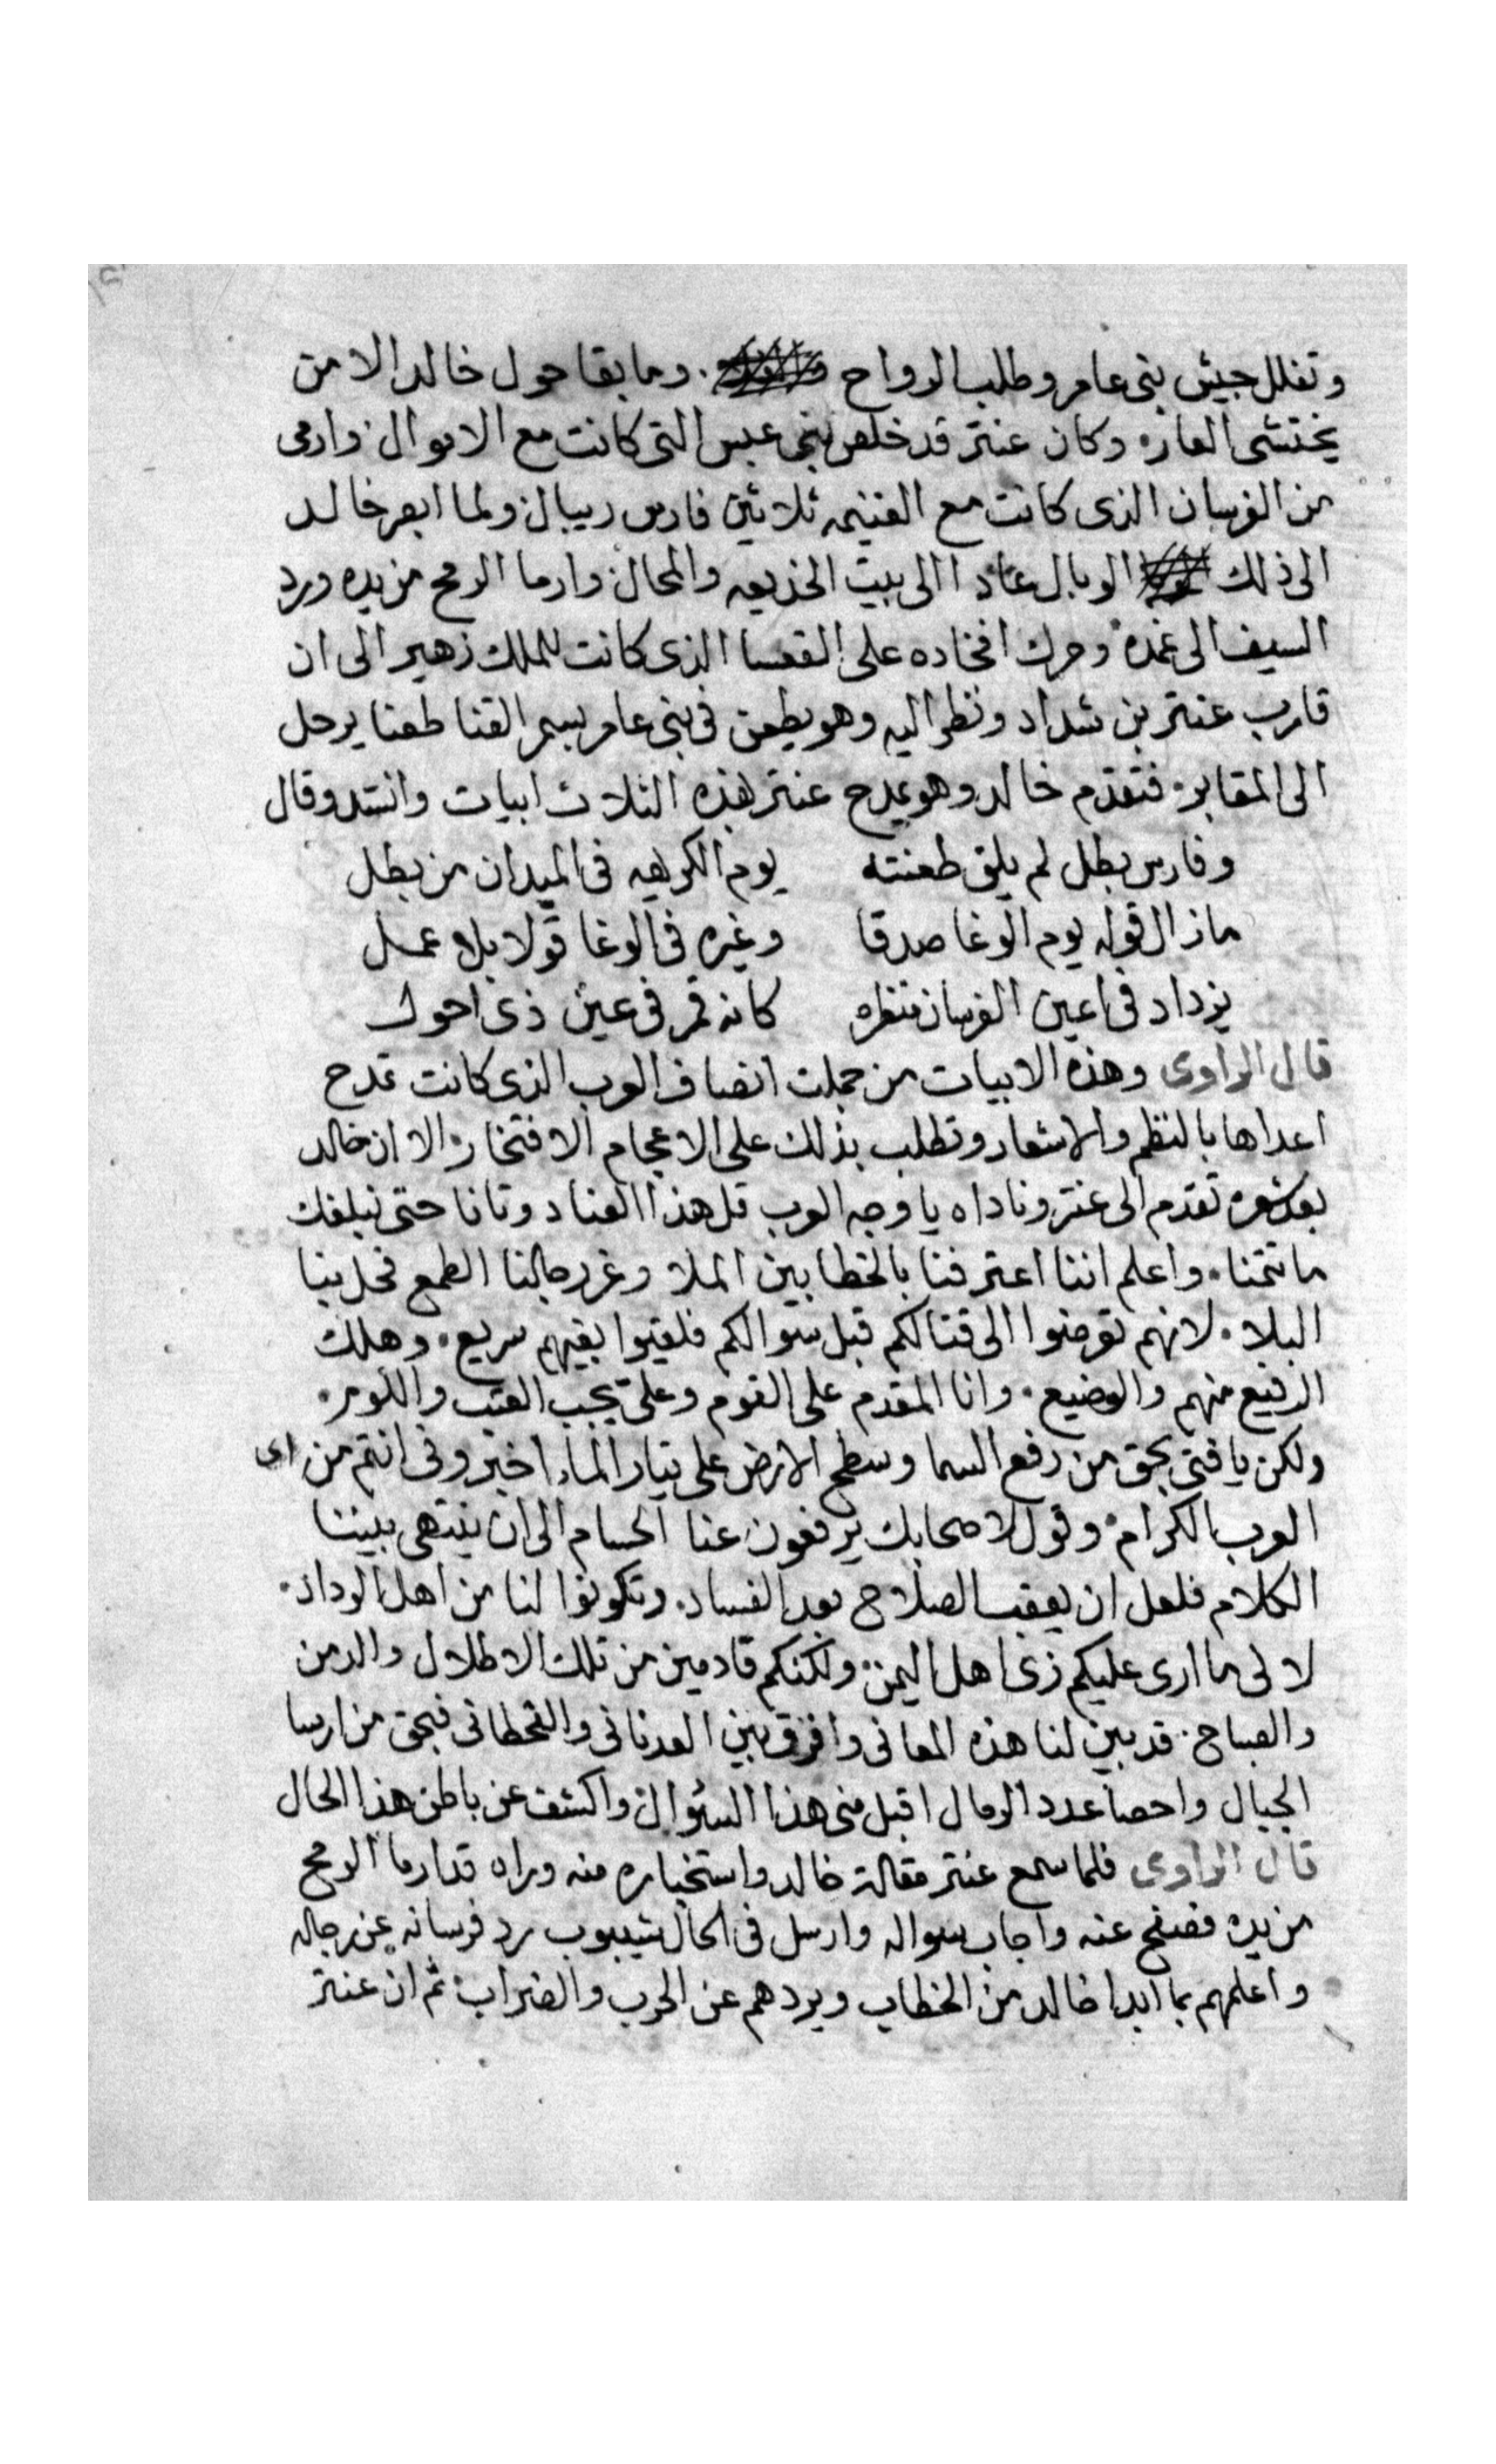 وتفلل جيش بنى عامر وطلب الرواح وما بقا حول خالد الا من
يختشى العاره وكان عنتر قد خلص بنى عبس التى كانت مع الاموال وارمى
من الفرسان الذى كانت مع الغنيمه ثلاثين فارس ريبال ولما ابصر خالد
الى ذلك الوبال عاد االى بيت الخديعه والمحال وارما الرمح من يده ورد
السيف الى غمده وحرك افخاده على القعسا الذى كانت للملك زهير الى ان
قارب عنتر بن شداد ونظر اليه وهو يطعن فى بنى عامر بسمر القنا طعنا يرحل
الى المقابر فتقدم خالد وهو يمدح عنتر بهذه الثلاث ابيات وانشد وقال
وفارس بطل لم يلق طعنته يوم الكريهه فى الميدان من بطل
مازال قوله يوم الوغا صدقا وغيره فى الوغا قولا بلا عمل
يزداد فى اعين الفرسان منظره كانه قمر فى عين ذى احول
قال الراوى وهذه الابيات من جملت انصاف العرب الذى كانت تمدح
اعداها بالنظم والاشعار وتطلب بذلك على الاعجام الافتخار الا ان خالد
بعد شعره تقدم الى عنتر وناداه يا وجه العرب قل هذا العناد وتانا حتى نبلغك
ما تتمنا واعلم اننا اعترفنا بالخطا بين الملا وغر رجالنا الطمع فحل بنا
البلا لانهم تعرضوا الى قتالكم قبل سوالكم فلقيوا بغيهم سريع وهلك
الرفيع منهم والوضيع وانا المقدم على القوم وعلى يجب العتب واللوم
ولكن يا فتى بحق من رفع السما وسطح الارض على تيار الماء اخبرونى انتم من اى
العرب الكرام وقول لاصحابك يرفعون عنا الحسام الى ان ينتهى بيننا
الكلام فلعل ان يعقب الصلاح بعد الفساد وتكونوا لنا من اهل الوداد
لا لى ما ارى عليكم زى اهل اليمن ولكنكم قادمين من تلك الاطلال والدمن
والصباح قد بين لنا هذه المعانى وافرق بين العدنانى والقحطانى فبحق من ارسا
الجبال واحصا عدد الرمال اقبل منى هذا السئوال واكشف عن باطن هذا الحال
قال الراوى فلما سمع عنتر مقالة خالد واستخباره منه وراه قد ارما الرمح
من يده فصفح عنه واجاب سواله وارسل فى الحال شيبوب رد فرسانه عن رجاله
واعلمهم بما ابدا خالد من الخطاب ويردهم عن الحرب والضراب ثم ان عنتر